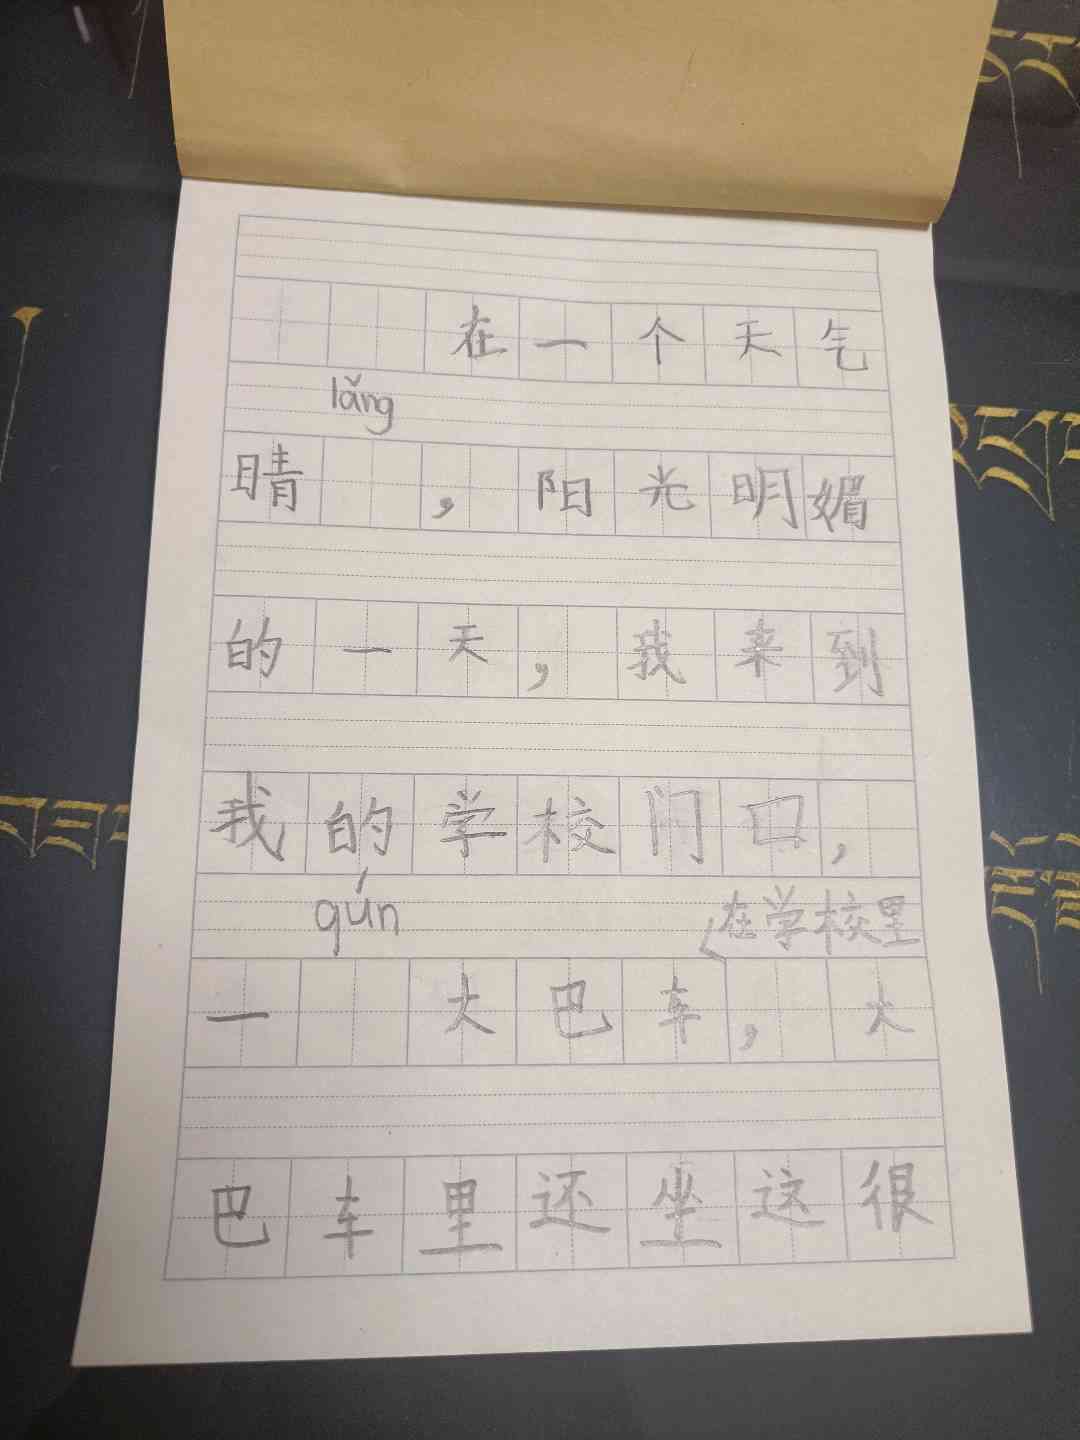 在一个天气
lǎng
晴，阳光明媚
的一天，我来到
我的学校门口，
qún
在学校里
一大巴车，大
巴车里还坐这很